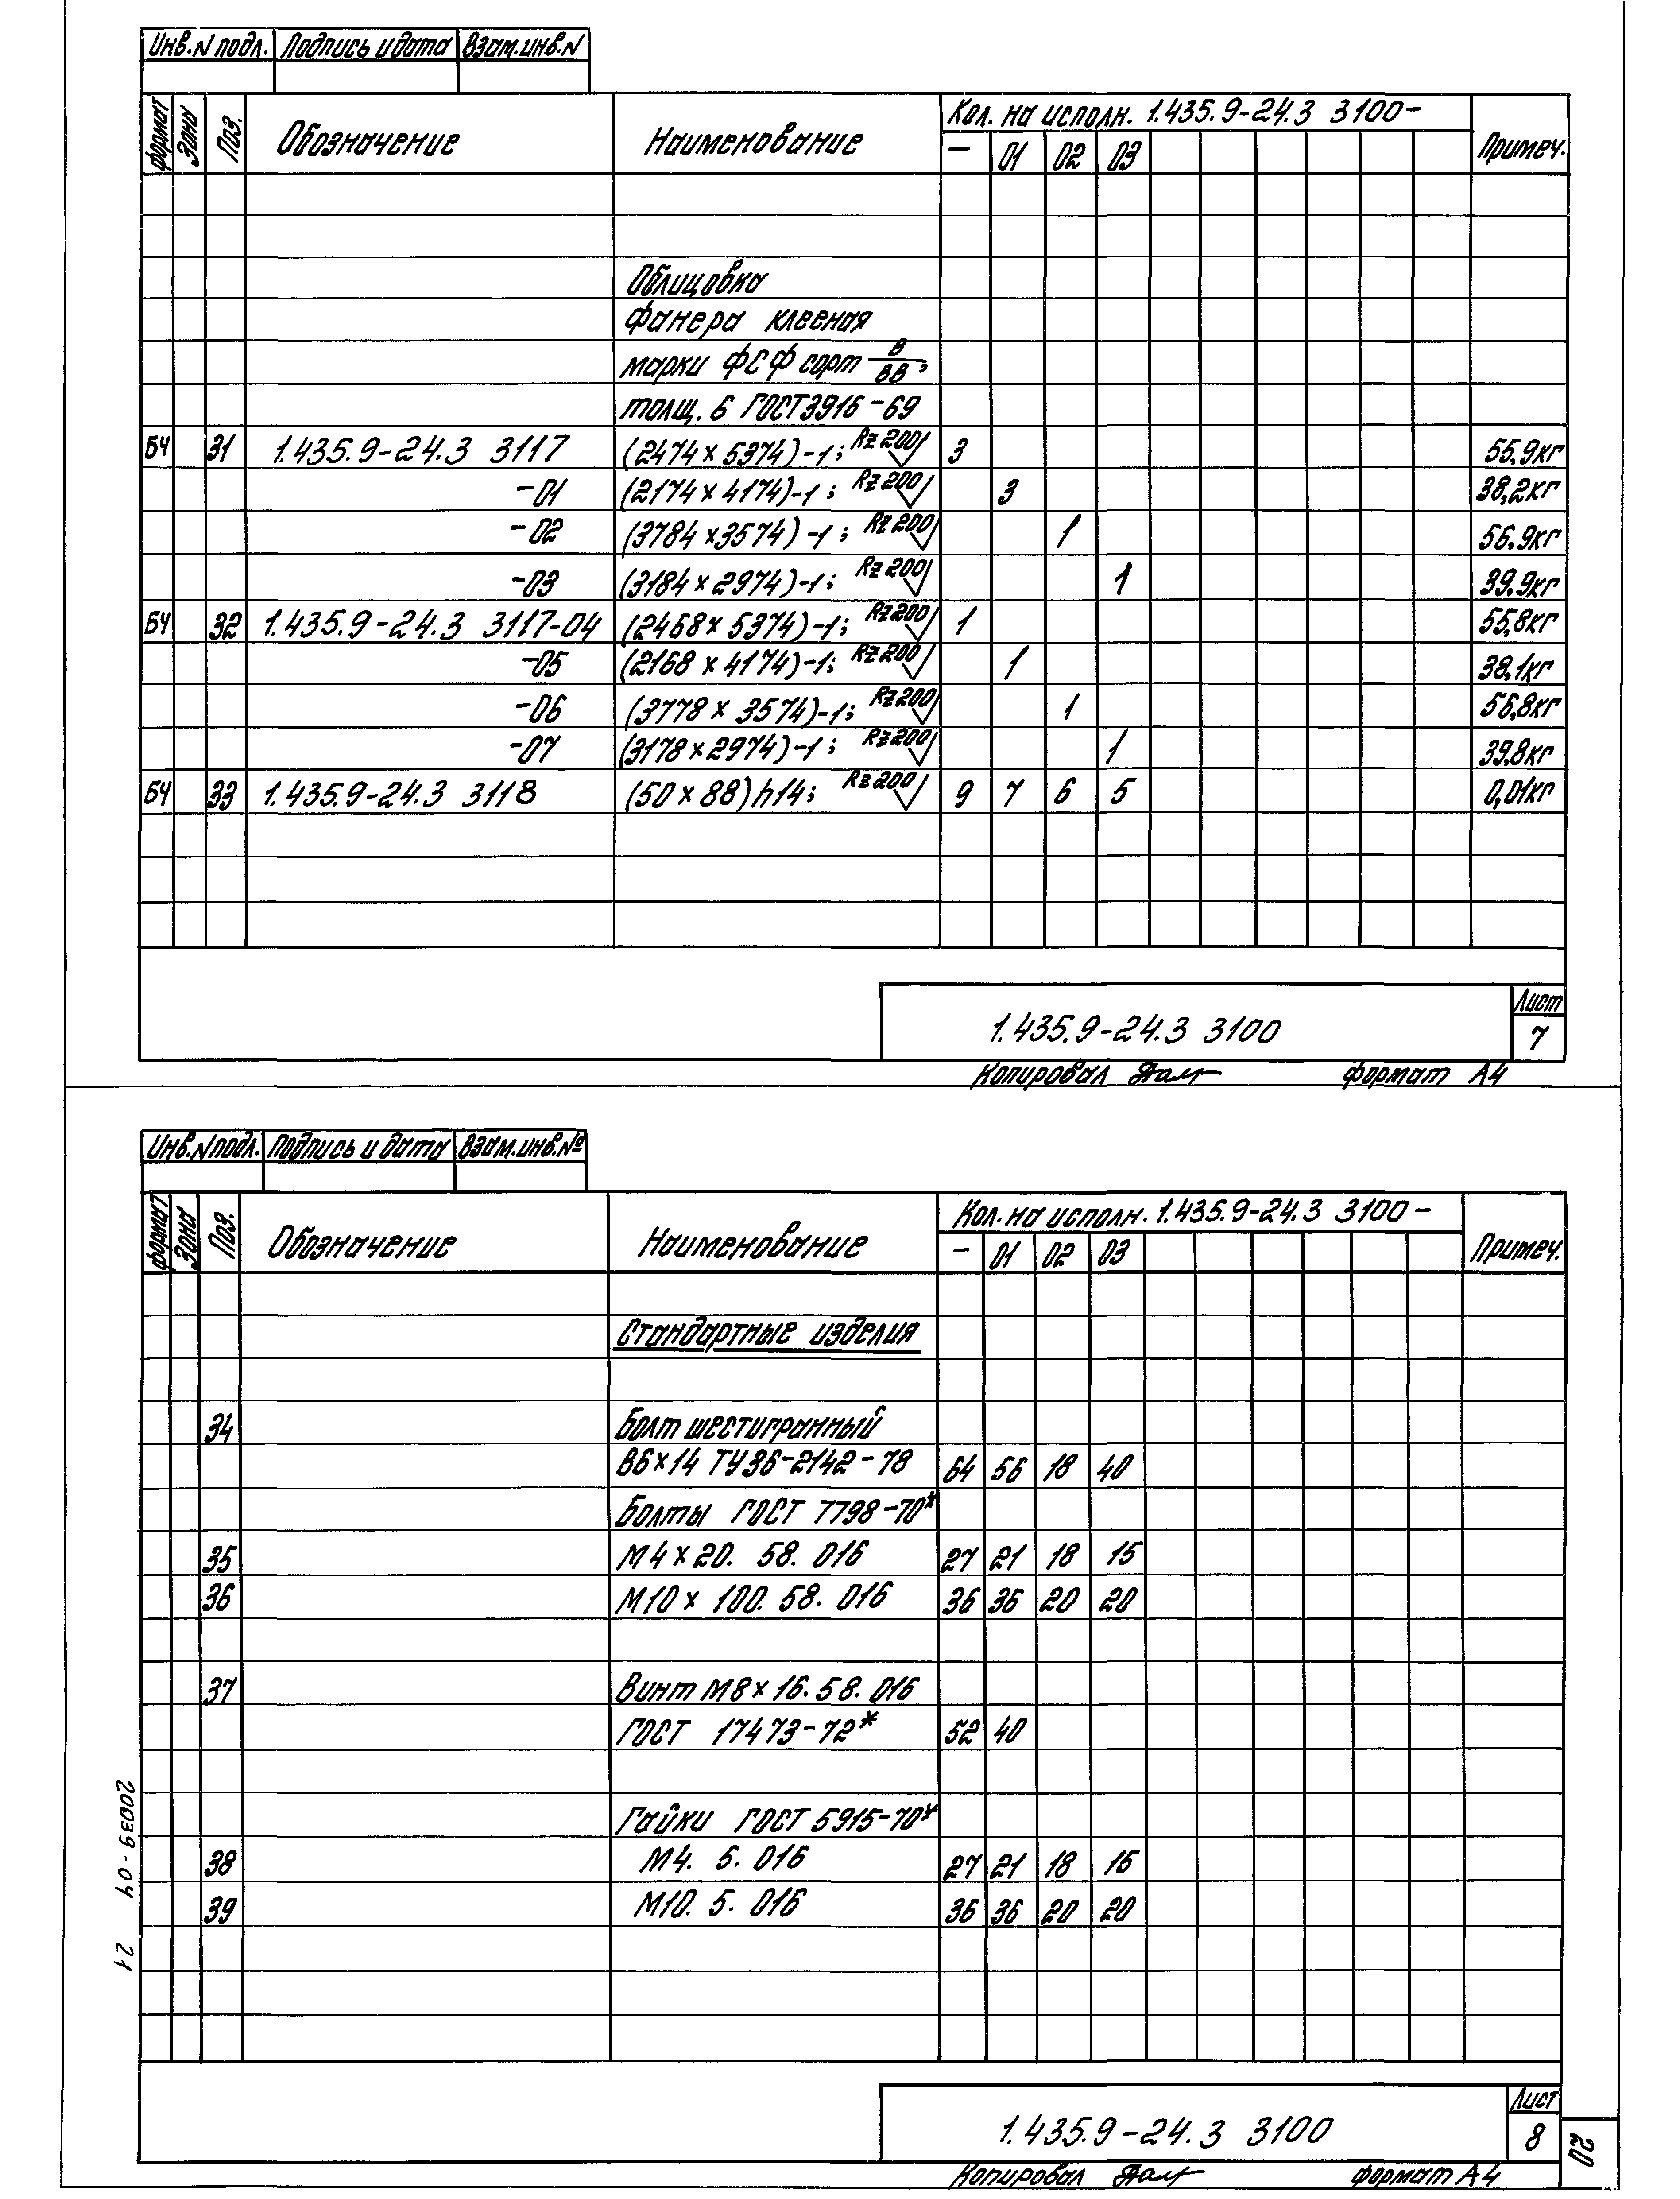 Инв.N подл. Подпись и дата Взам.инв.N
формат Зона Поз. Обозначение Наименование Кол. на исполн. 1.435.9-24.3 3100- Примеч.
- 01 02 03
Облицовка
Фанера клееная
марки ФСФ сорт В/ВВ,
толщ. 6 ГОСТ3916-69
БЧ 31 1.435.9-24.3 3117 (2474×5374)-1; Rz200 3 55,9кг
-01 (2174×4174)-1; Rz200 3 38,2кг
-02 (3784×3574)-1; Rz200 1 56,9кг
-03 (3184×2974)-1; Rz200 1 39,9кг
БЧ 32 1.435.9-24.3 3117-04 (2468×5374)-1; Rz200 1 55,8кг
-05 (2168×4174)-1; Rz200 1 38,1кг
-06 (3778×3574)-1; Rz200 1 56,8кг
-07 (3178×2974)-1; Rz200 1 39,8кг
БЧ 33 1.435.9-24.3 3118 (50×88)h14; Rz200 9 7 6 5 0,01кг
1.435.9-24.3 3100 Лист
7
Копировал формат А4
Инв.N подл. Подпись и дата Взам.инв.№
формат Зона Поз. Обозначение Наименование Кол. на исполн. 1.435.9-24.3 3100- Примеч.
- 01 02 03
Стандартные изделия
34 Болт шестигранный
В6×14 ТУ36-2142-78 64 56 18 40
Болты ГОСТ 7798-70*
35 М4×20. 58. 016 27 21 18 15
36 М10×100. 58. 016 36 36 20 20
37 Винт М8×16. 58. 016
ГОСТ 17473-72* 52 40
Гайки ГОСТ 5915-70*
38 М4. 5. 016 27 21 18 15
39 М10. 5. 016 36 36 20 20
20039-04 21
1.435.9-24.3 3100 Лист
8
20
Копировал формат А4